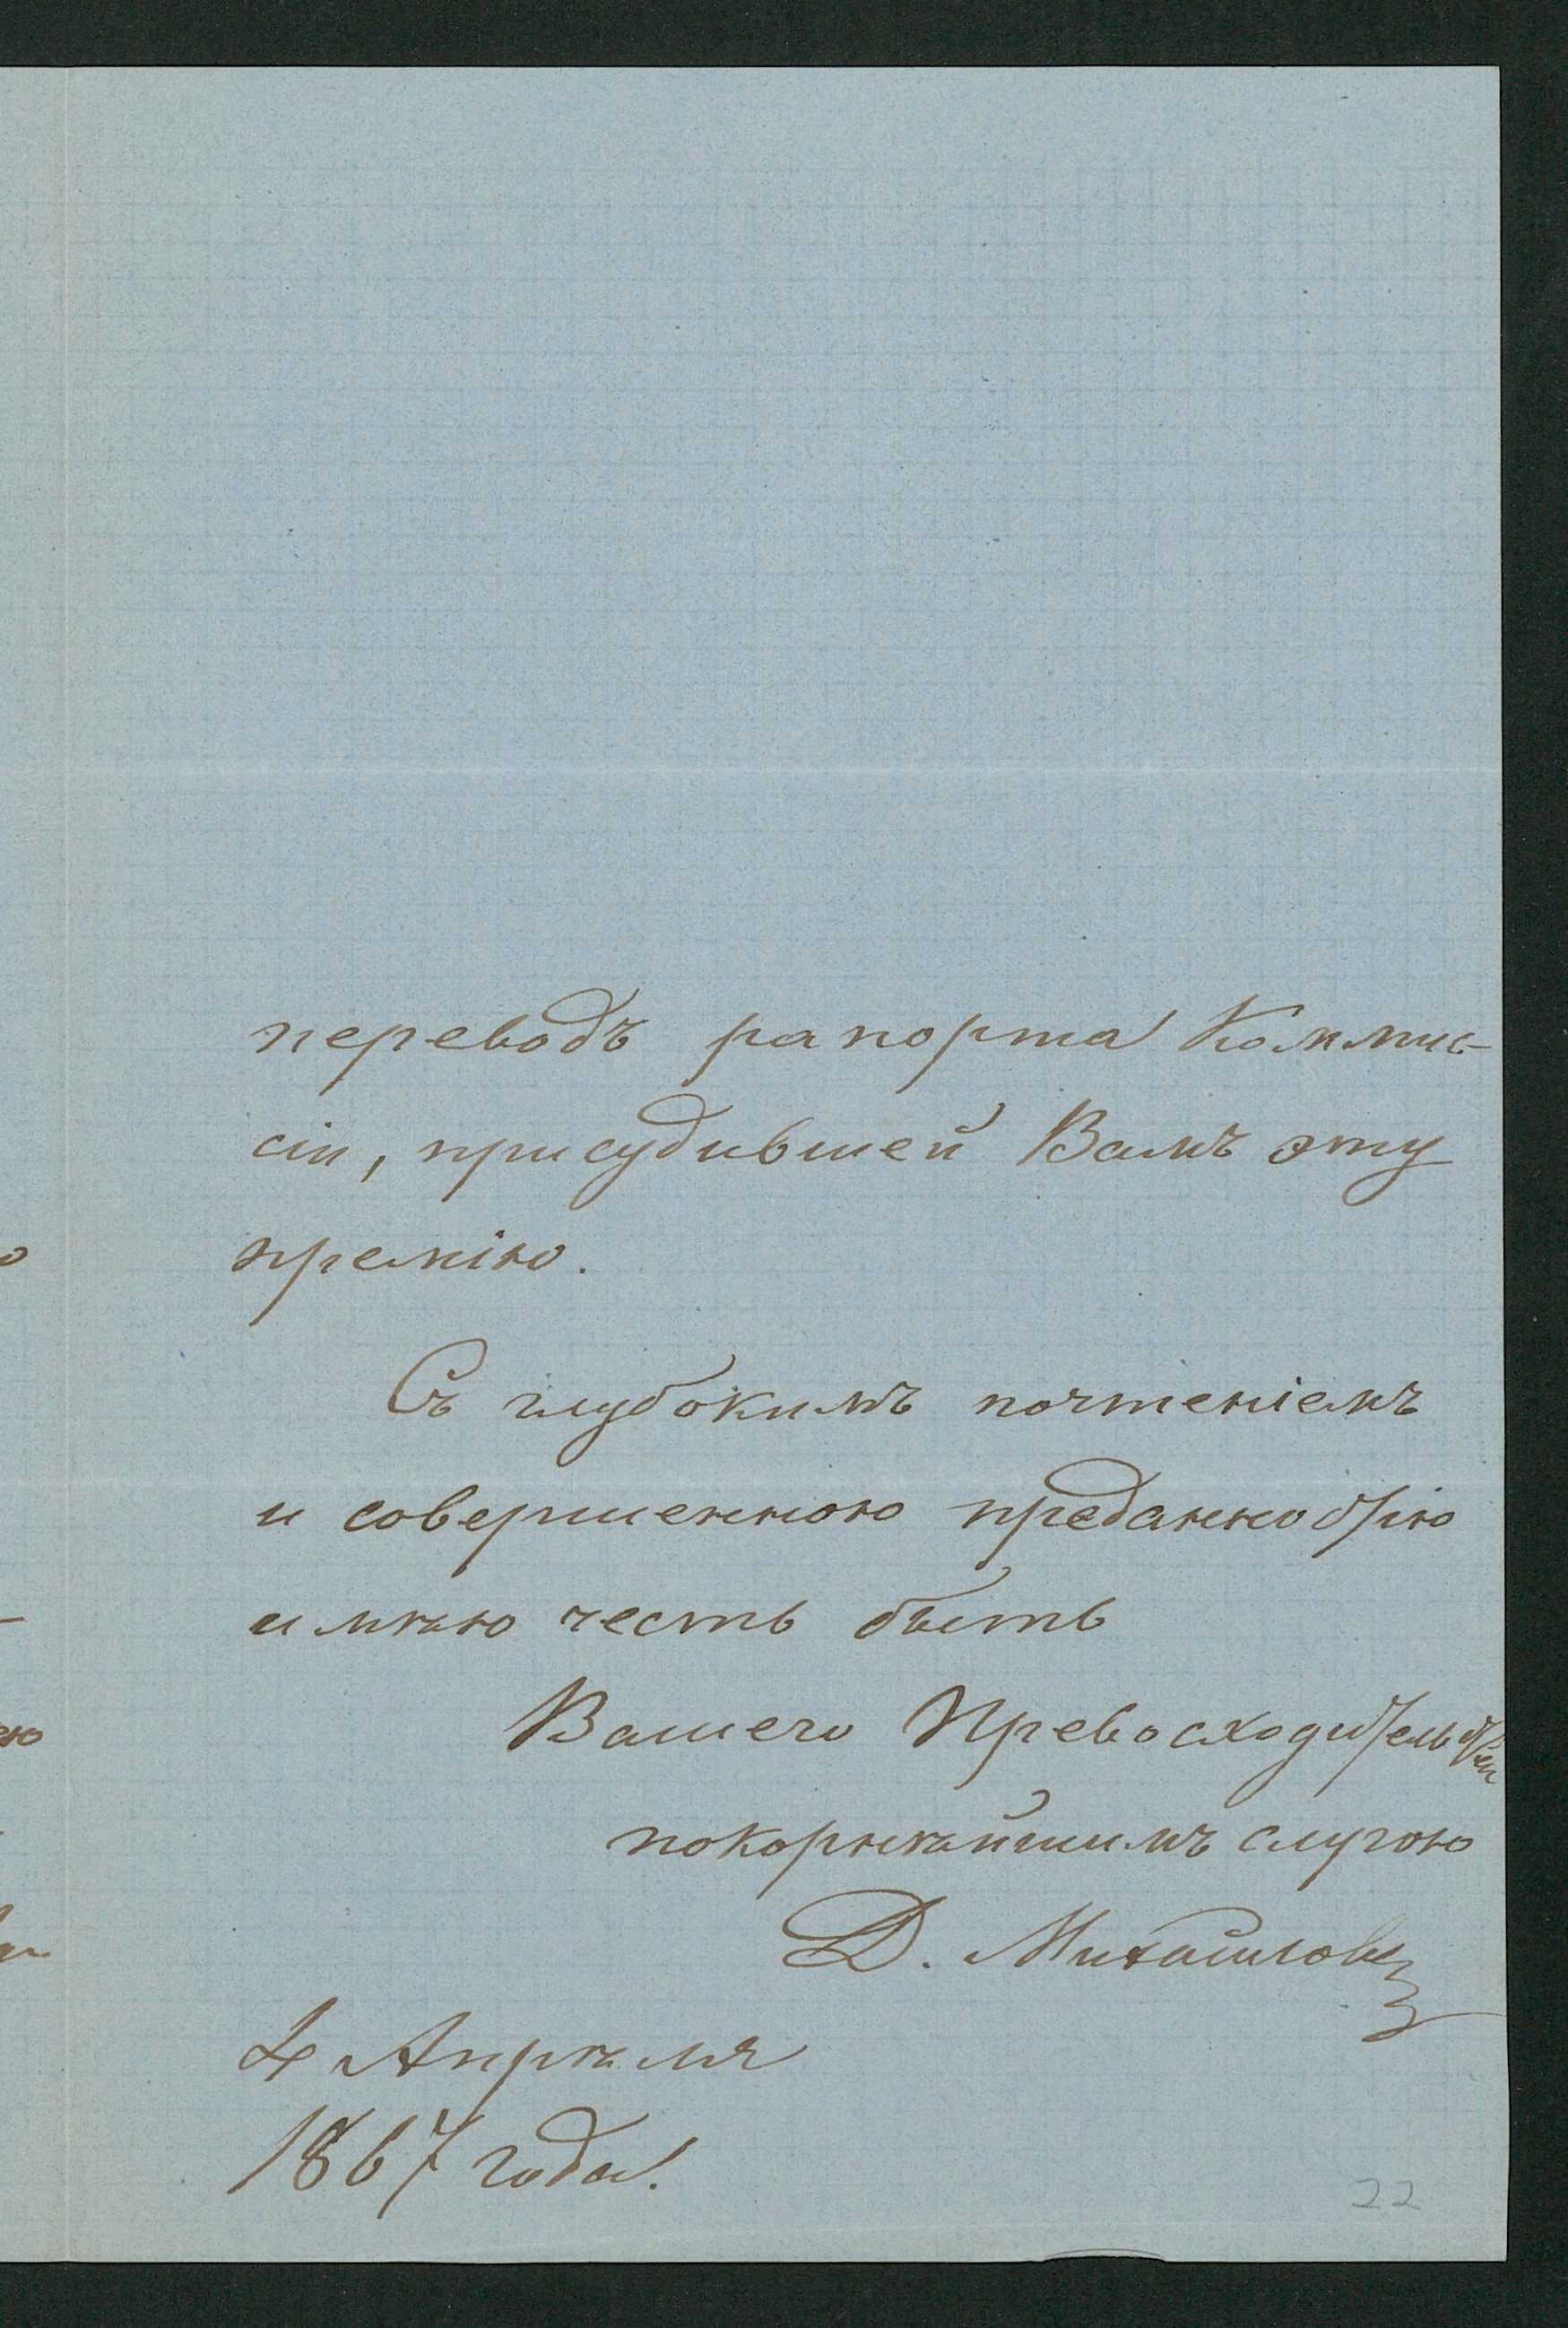 переводъ рапорта Коммис-
сіи, присудившей Вамъ эту
премію.
Съ глубокимъ почтеніемъ
и совершенною преданностію
имѣю честь быть
Вашего Превосходительства
покорнѣйшимъ слугою
Д. Михайловъ
4 Апрѣля
1867 года.
22